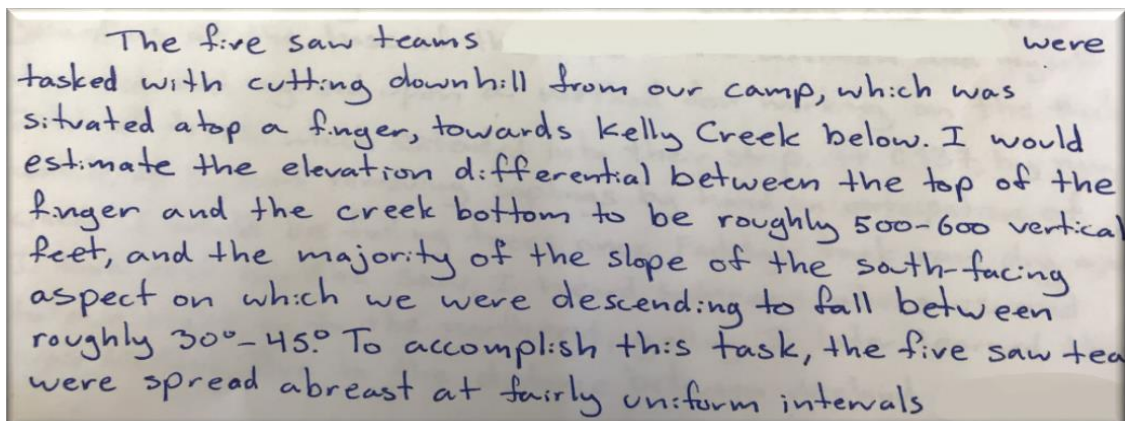 The five saw teams were
tasked with cutting downhill from our camp, which was
situated atop a finger, towards Kelly Creek below. I would
estimate the elevation differential between the top of the
finger and the creek bottom to be roughly 500-600 vertical
feet, and the majority of the slope of the south-facing
aspect on which we were descending to fall between
roughly 30°-45°. To accomplish this task, the five saw tea
were spread abreast at fairly uniform intervals